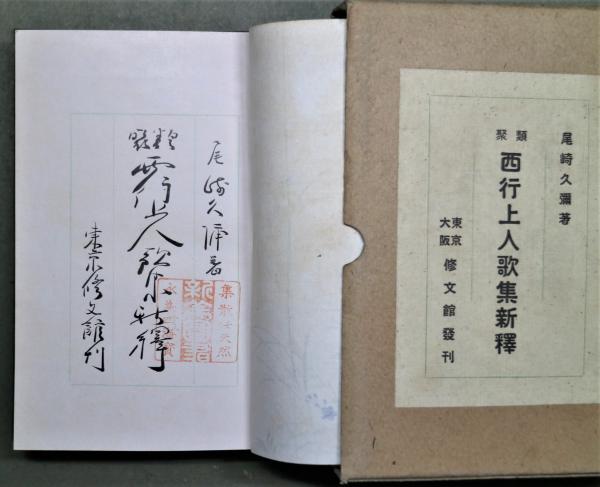 尾崎久彌著
類聚
西行上人歌集新釋
東京
大阪
修文館發刊
尾崎久彌著
類聚
西行上人歌集新釋
東京修文館刊